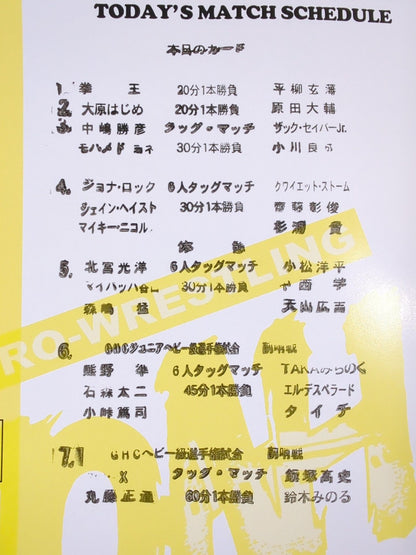 TODAY'S MATCH SCHEDULE
本日のカード
1. 拳 王 20分1本勝負 平柳玄藩
2. 大原はじめ 20分1本勝負 原田大輔
3. 中嶋勝彦 タッグ・マッチ ザック・セイバーJr.
モハメド ヨネ 30分1本勝負 小川良成
4. ジョナ・ロック 6人タッグマッチ クワイエット・ストーム
シェイン・ヘイスト 30分1本勝負 齋藤彰俊
マイキー・ニコルス 杉浦 貴
休憩
5. 北宮光洋 6人タッグマッチ 小松洋平
マイバッハ谷口 30分1本勝負 西 学
森嶋 猛 天山広吉
RO-WRESTLING
6. GHCジュニアヘビー級選手権試合 前哨戦
熊野 準 6人タッグマッチ TAKAみちのく
石森太二 45分1本勝負 エル・デスペラード
小峠篤司 タイチ
7. GHCヘビー級選手権試合 前哨戦
X タッグ・マッチ 飯塚高史
丸藤正道 60分1本勝負 鈴木みのる